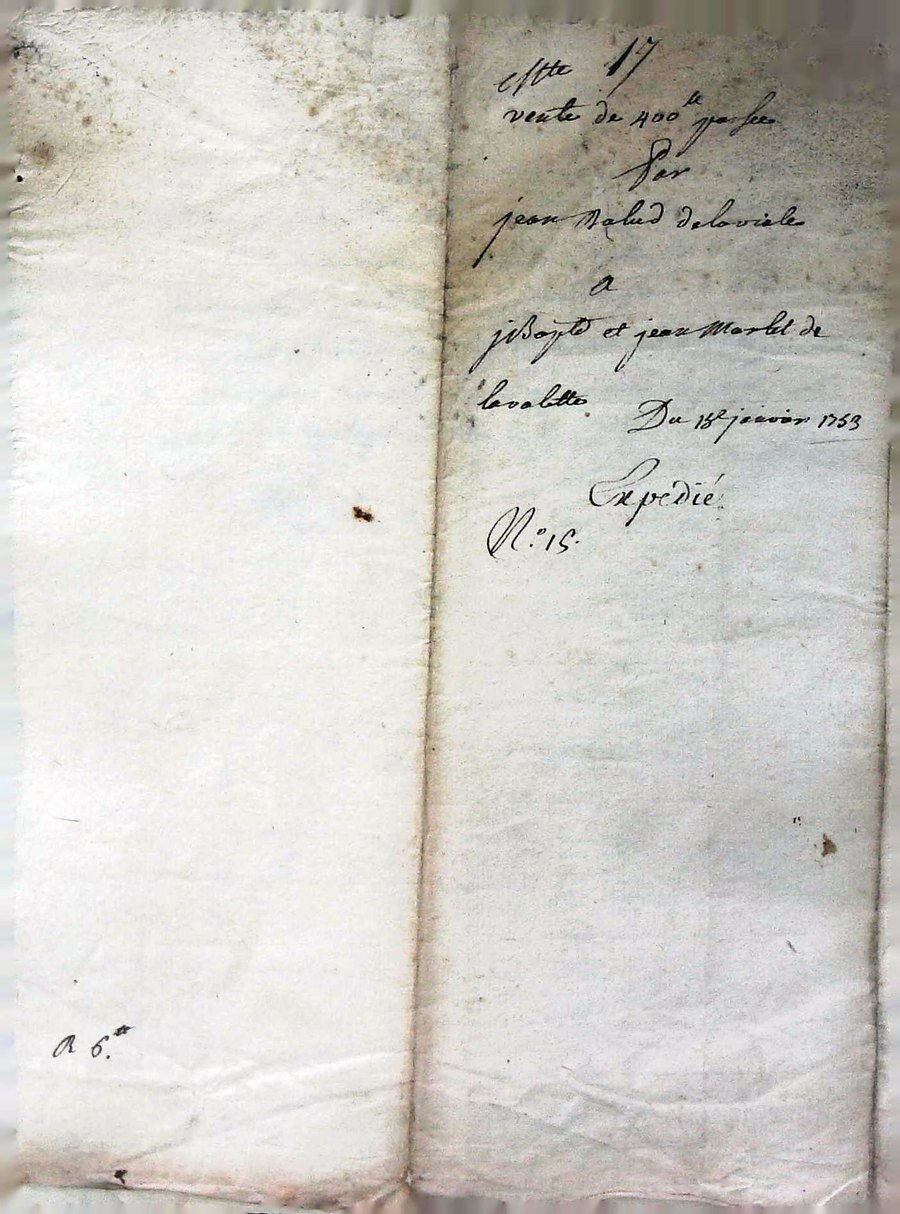 cste 17
vente de 400tt passee
Par
jean Balud delaviale
a
jBapte et jean Marlet de
lavalette
Du 15e janvier 1753
Expedié
N.o 15.
R 6.tt